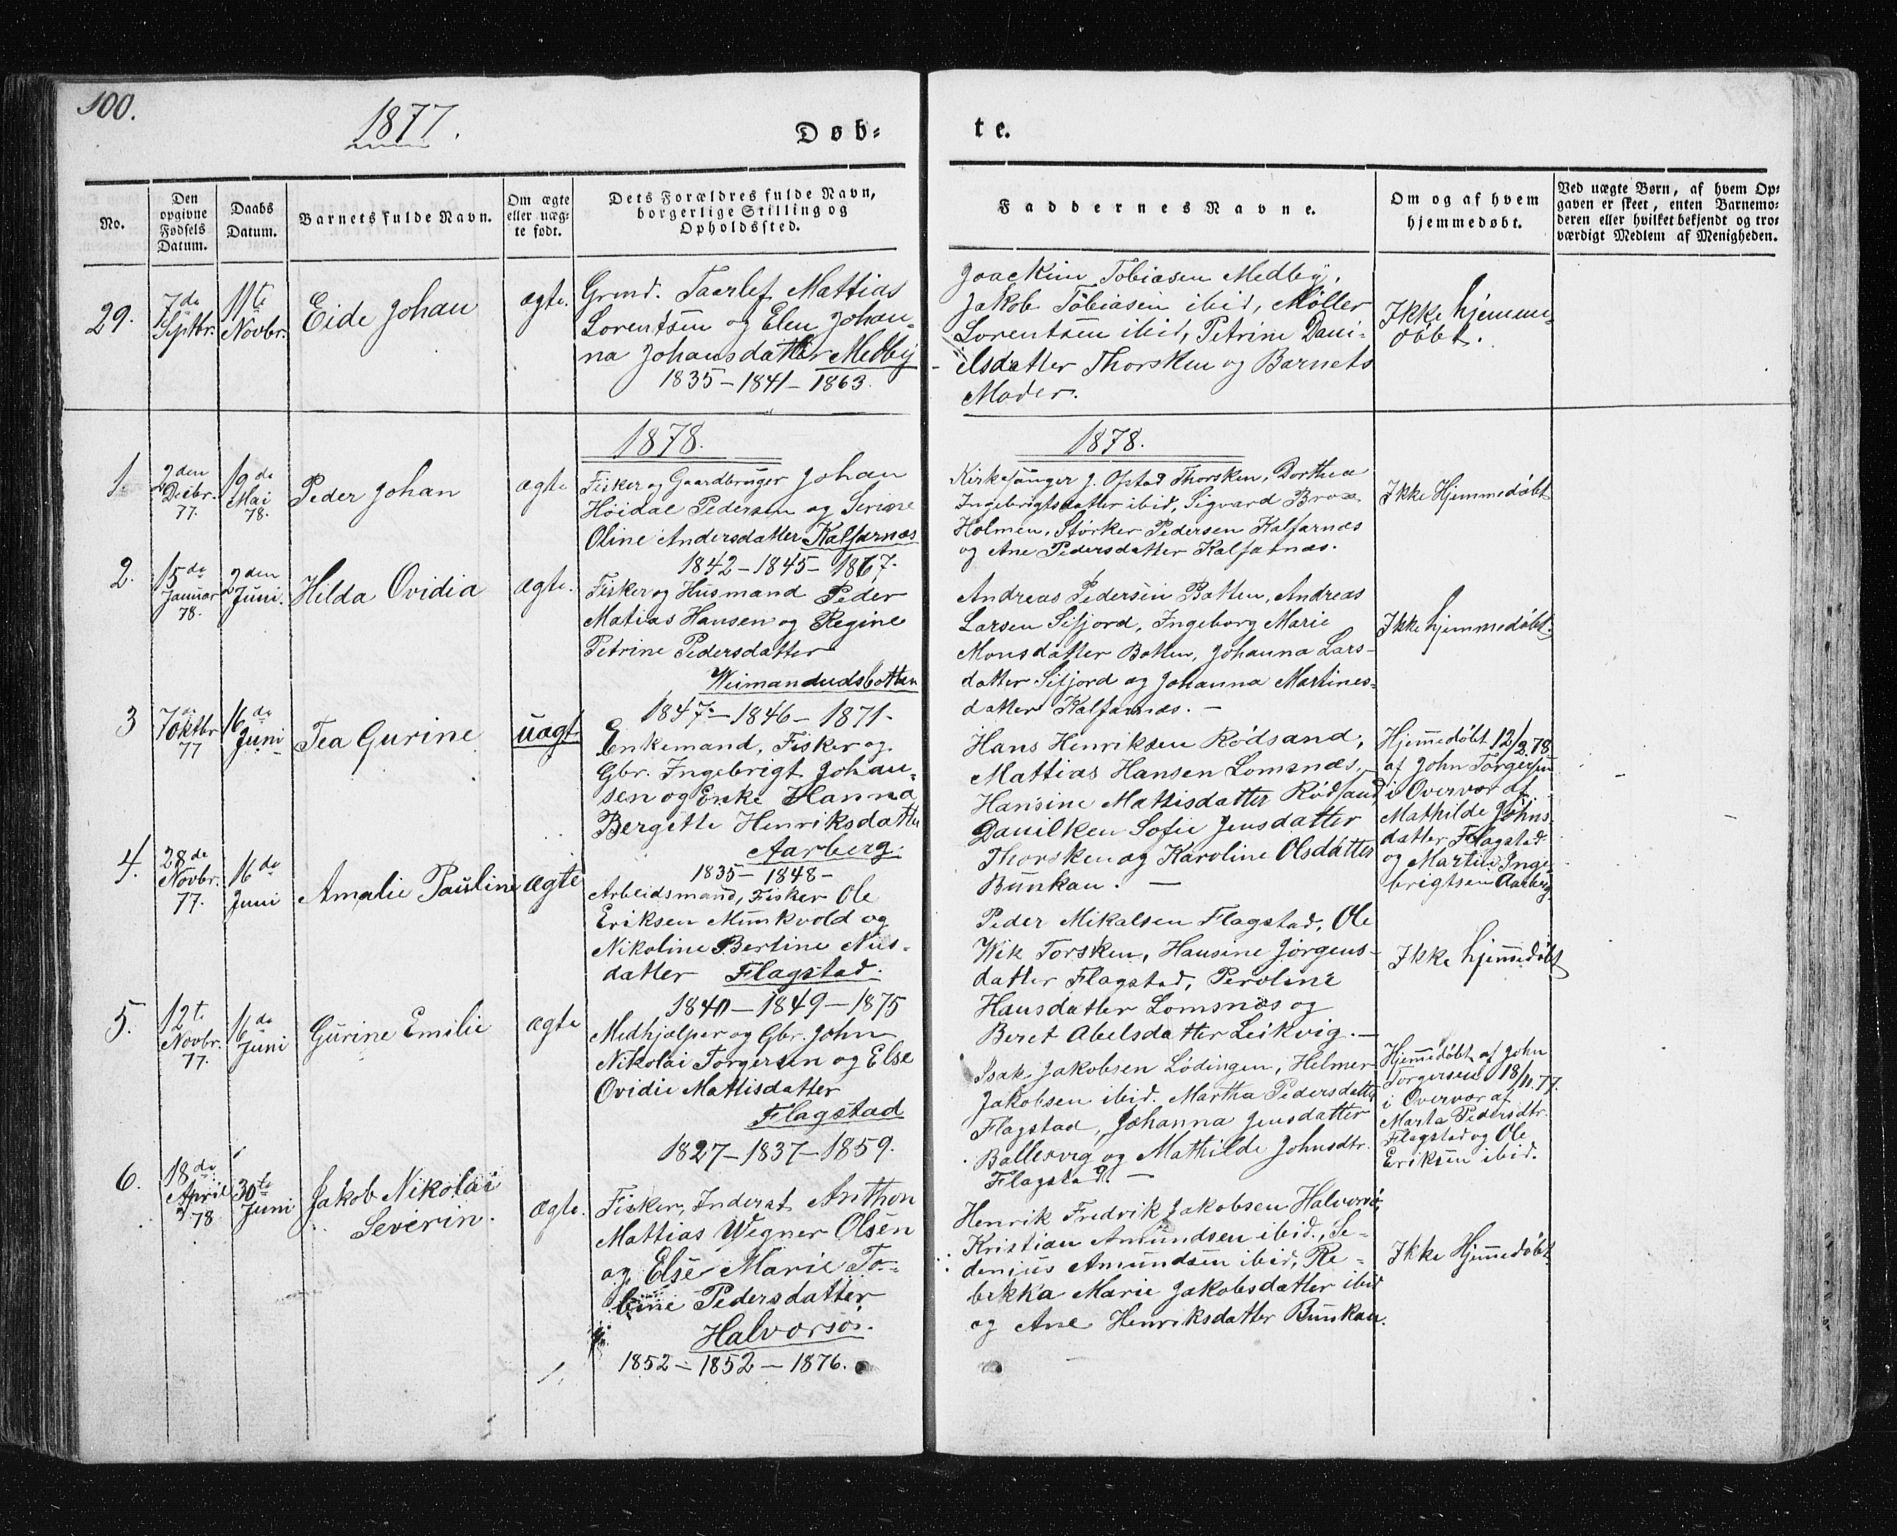 100.
1877.
Døb-
te.
No.
Den opgivne Fødsels Datum.
Daabs Datum.
Barnets fulde Navn.
Om ægte eller uæg-te født.
Dets Forældres fulde Navn, borgerlige Stilling og Opholdssted.
Faddernes Navne.
Om og af hvem hjemmedøbt.
Ved uægte Børn, af hvem Op-gaven er skeet, enten Barnemo-deren eller hvilket bekjendt og tro-værdigt Medlem af Menigheden.
29.
7de Septbr.
11te Novbr.
Eide Johan
ægte.
Grmd. Taerlef Mattias
Lorentsen og Elen Johan-
na Johansdatter Medby
1835 - 1841 - 1863.
Joackim Tobiasen Medby,
Jakob Tobiasen ibid, Møller
Lorentsen ibid, Petrine Dani-
elsdatter Thorsken og Barnets
Moder.
Ikke hjemme-
døbt.
1878.
1878.
1.
2den Decbr. 77.
19de Mai 78.
Peder Johan
ægte
Fisker og Gaardbruger Johan
Høidal Pedersen og Serine
Oline Andersdatter Kalfarnæs
1842 - 1845 - 1867.
Kirkesanger J. Opstad Thorsken, Dorthea
Ingebrigtsdatter ibid, Sigvard Brox
Holmen, Størker Pedersen Kalfarnæs
og Ane Pedersdatter Kalfarnæs.
Ikke Hjemmedøbt
2.
15de Januar 78.
2den Juni.
Hilda Ovidia
ægte.
Fisker og Husmand Peder
Matias Hansen og Regine
Petrine Pedersdatter
Weimandudsbotten
1847 - 1846 - 1871.
Andreas Pedersen Botten, Andreas
Larsen Sifjord, Ingeborg Marie
Monsdatter Botten, Johanna Lars-
datter Sifjord og Johanna Martines-
datter Kalfarnæs. -
Ikke hjemmedøbt.
3
7de Oktbr 77
16de Juni
Tea Gurine
uægt
Enkemand, Fisker og
Gbr. Ingebrigt Johan-
sen og Enke Hanna
Bergette Henriksdatter
Aarberg.
1835 - 1848 -
Hans Henriksen Rødsand,
Mattias Hansen Lomsnæs,
Hansine Mattisdatter Rødsand
Danilken Sofie Jensdatter
Thorsken og Karoline Olsdatter
Bunkan. -
Hjemmedøbt 12/2 78
af John Torgersen
i Overvær af
Mathilde Johns-
datter Flagstad
og Martin Inge-
brigtsen Aarberg
4.
28de Novbr. 77.
16de Juni
Amalie Pauline
ægte
Arbeidsmand, Fisker Ole
Eriksen Munkvold og
Nikoline Bertine Niis-
datter Flagstad.
1840 - 1849 - 1875
Peder Mikalsen Flagstad, Ole
Wik Torsken, Hansine Jørgens-
datter Flagstad, Peroline
Hansdatter Lomsnæs og
Beret Abelsdatter Leikvig. -
Ikke hjemmedøbt
5.
12t. Novbr. 77.
16de Juni
Gurine Emilie
ægte
Medhjælper og Gbr. John
Nikolai Torgersen og Else
Ovidie Mattisdatter
Flagstad
1827 - 1837 - 1859.
Isak Jakobsen Lødingen, Helmer
Jakobsen ibid. Martha Pedersdatter
Flagstad, Johanna Jensdatter
Ballesvig og Mathilde Johnsdtr.
Flagstad -
Hjemmedøbt af John
Torgersen 18/11.77.
i Overvær af
Marta Pedersdtr.
Flagstad og Ole
Eriksen ibid.
6.
18de April 78
30te Juni
Jakob Nikolai
Severin.
ægte.
Fisker, Inderst Anthon
Mattias Wegner Olsen
og Else Marie To-
bine Pedersdatter
Halvorsø.
1852 - 1852 - 1876.
Henrik Fredrik Jakobsen Halvorsø,
Kristian Amundsen ibid., Se-
denius Amundsen ibid, Re-
bekka Marie Jakobsdatter ibid
og Ane Henriksdatter Bunkan.
Ikke Hjemmedøbt